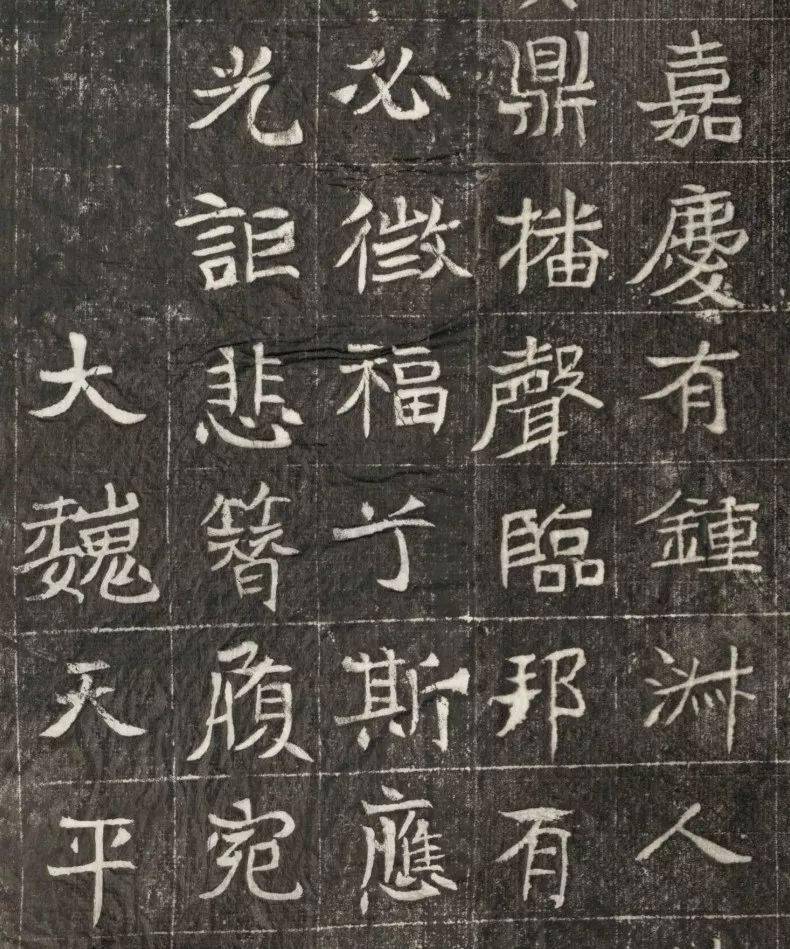 嘉慶有鍾淵人
鼎播聲臨邦有
必徵福兮斯應
光詎悲簪履宛
大魏天平